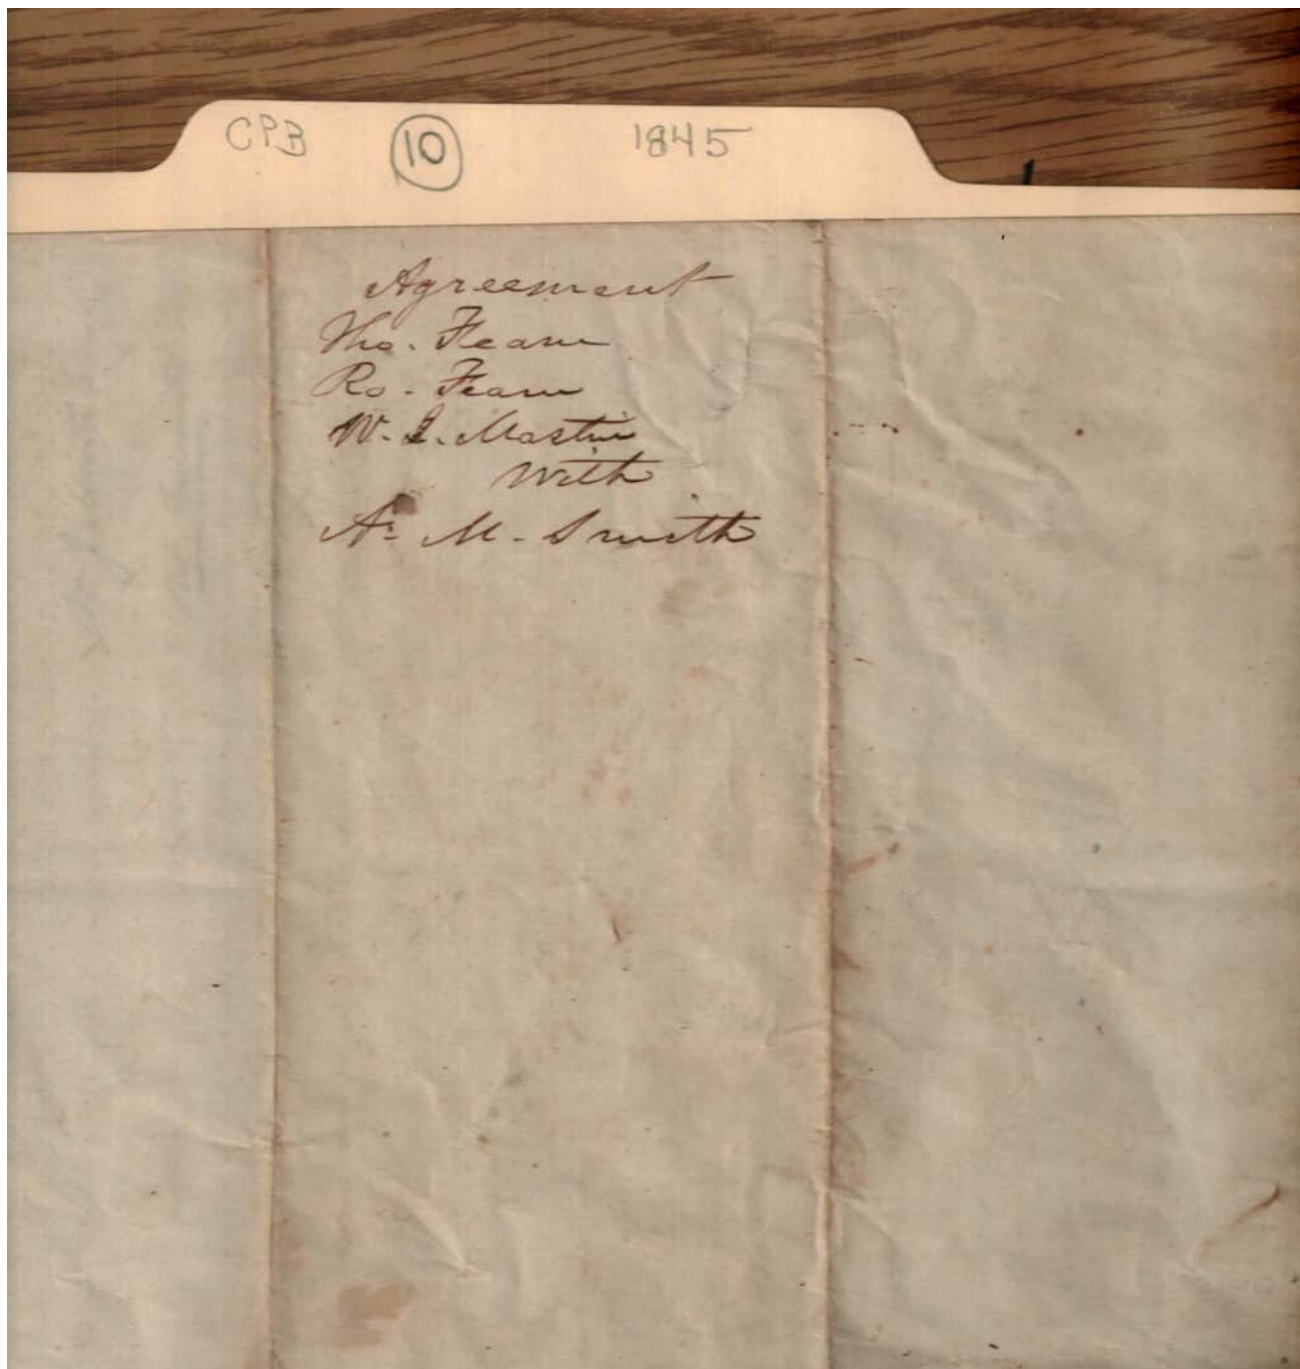 CPB 10 1845
Agreement
Tho. Fearn
Ro. Fearn
W. I. Mastin
With
A. M. Smith